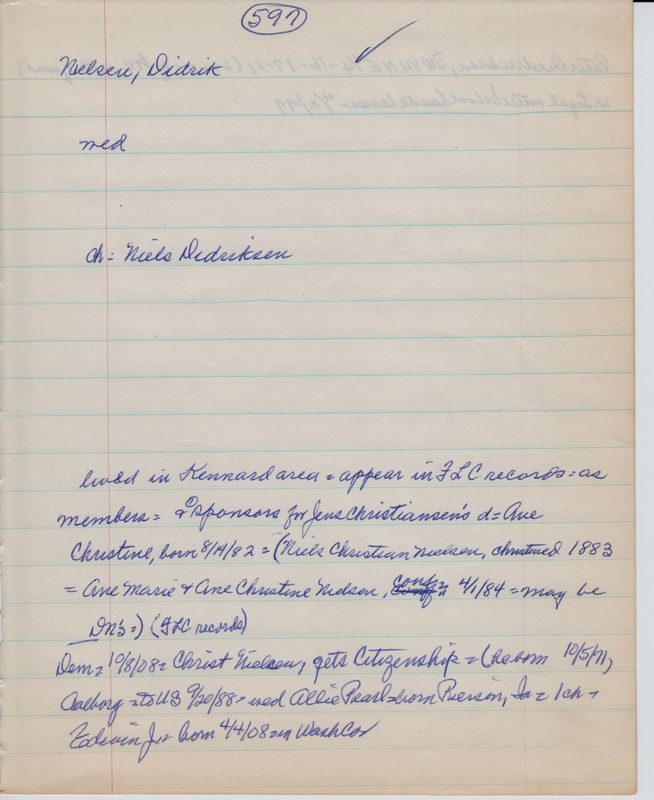 597
Nielsen, Didrik
med
ch = Niels Didriksen
lived in Kennard area = appear in FLC records = as
members = & sponsors for Jens Christiansen's d = Ane
Christine, born 8/14/82 = (Niels Christian Nielsen, christened 1883
= Ane Marie & Ane Christine Nielsen, conf = 4/1/84 = may be
DN's =) (FLC records)
Dem = 10/8/08 = Christ Nielsen, gets Citizenship = (he born 10/5/71,
Aalborg = to US 9/20/88 = med Allie Pearl = born Pierson, Ia = 1 ch =
Edwin J = born 4/4/08 = in Wash Co)